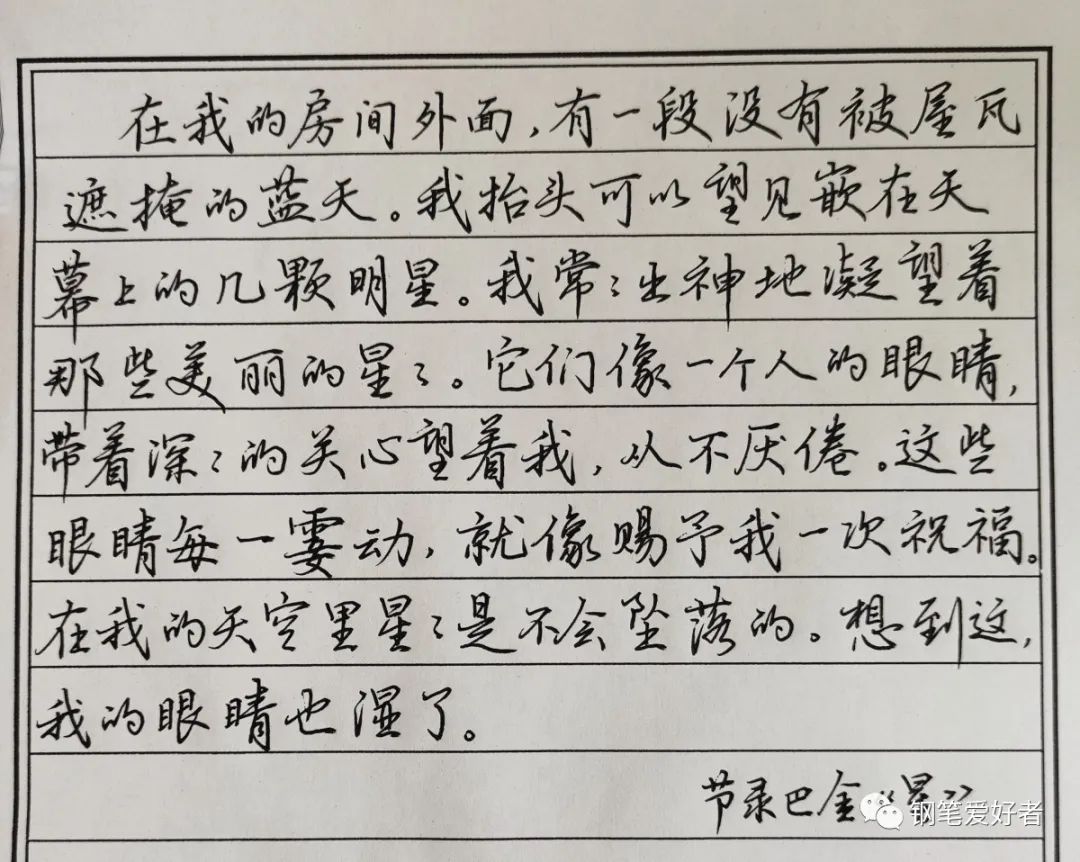 在我的房间外面，有一段没有被屋瓦
遮掩的蓝天。我抬头可以望见嵌在天
幕上的几颗明星。我常〻出神地凝望着
那些美丽的星〻。它们像一个人的眼睛，
带着深〻的关心望着我，从不厌倦。这些
眼睛每一霎动，就像赐予我一次祝福。
在我的天空里星〻是不会坠落的。想到这，
我的眼睛也湿了。
节录巴金《星》
钢笔爱好者